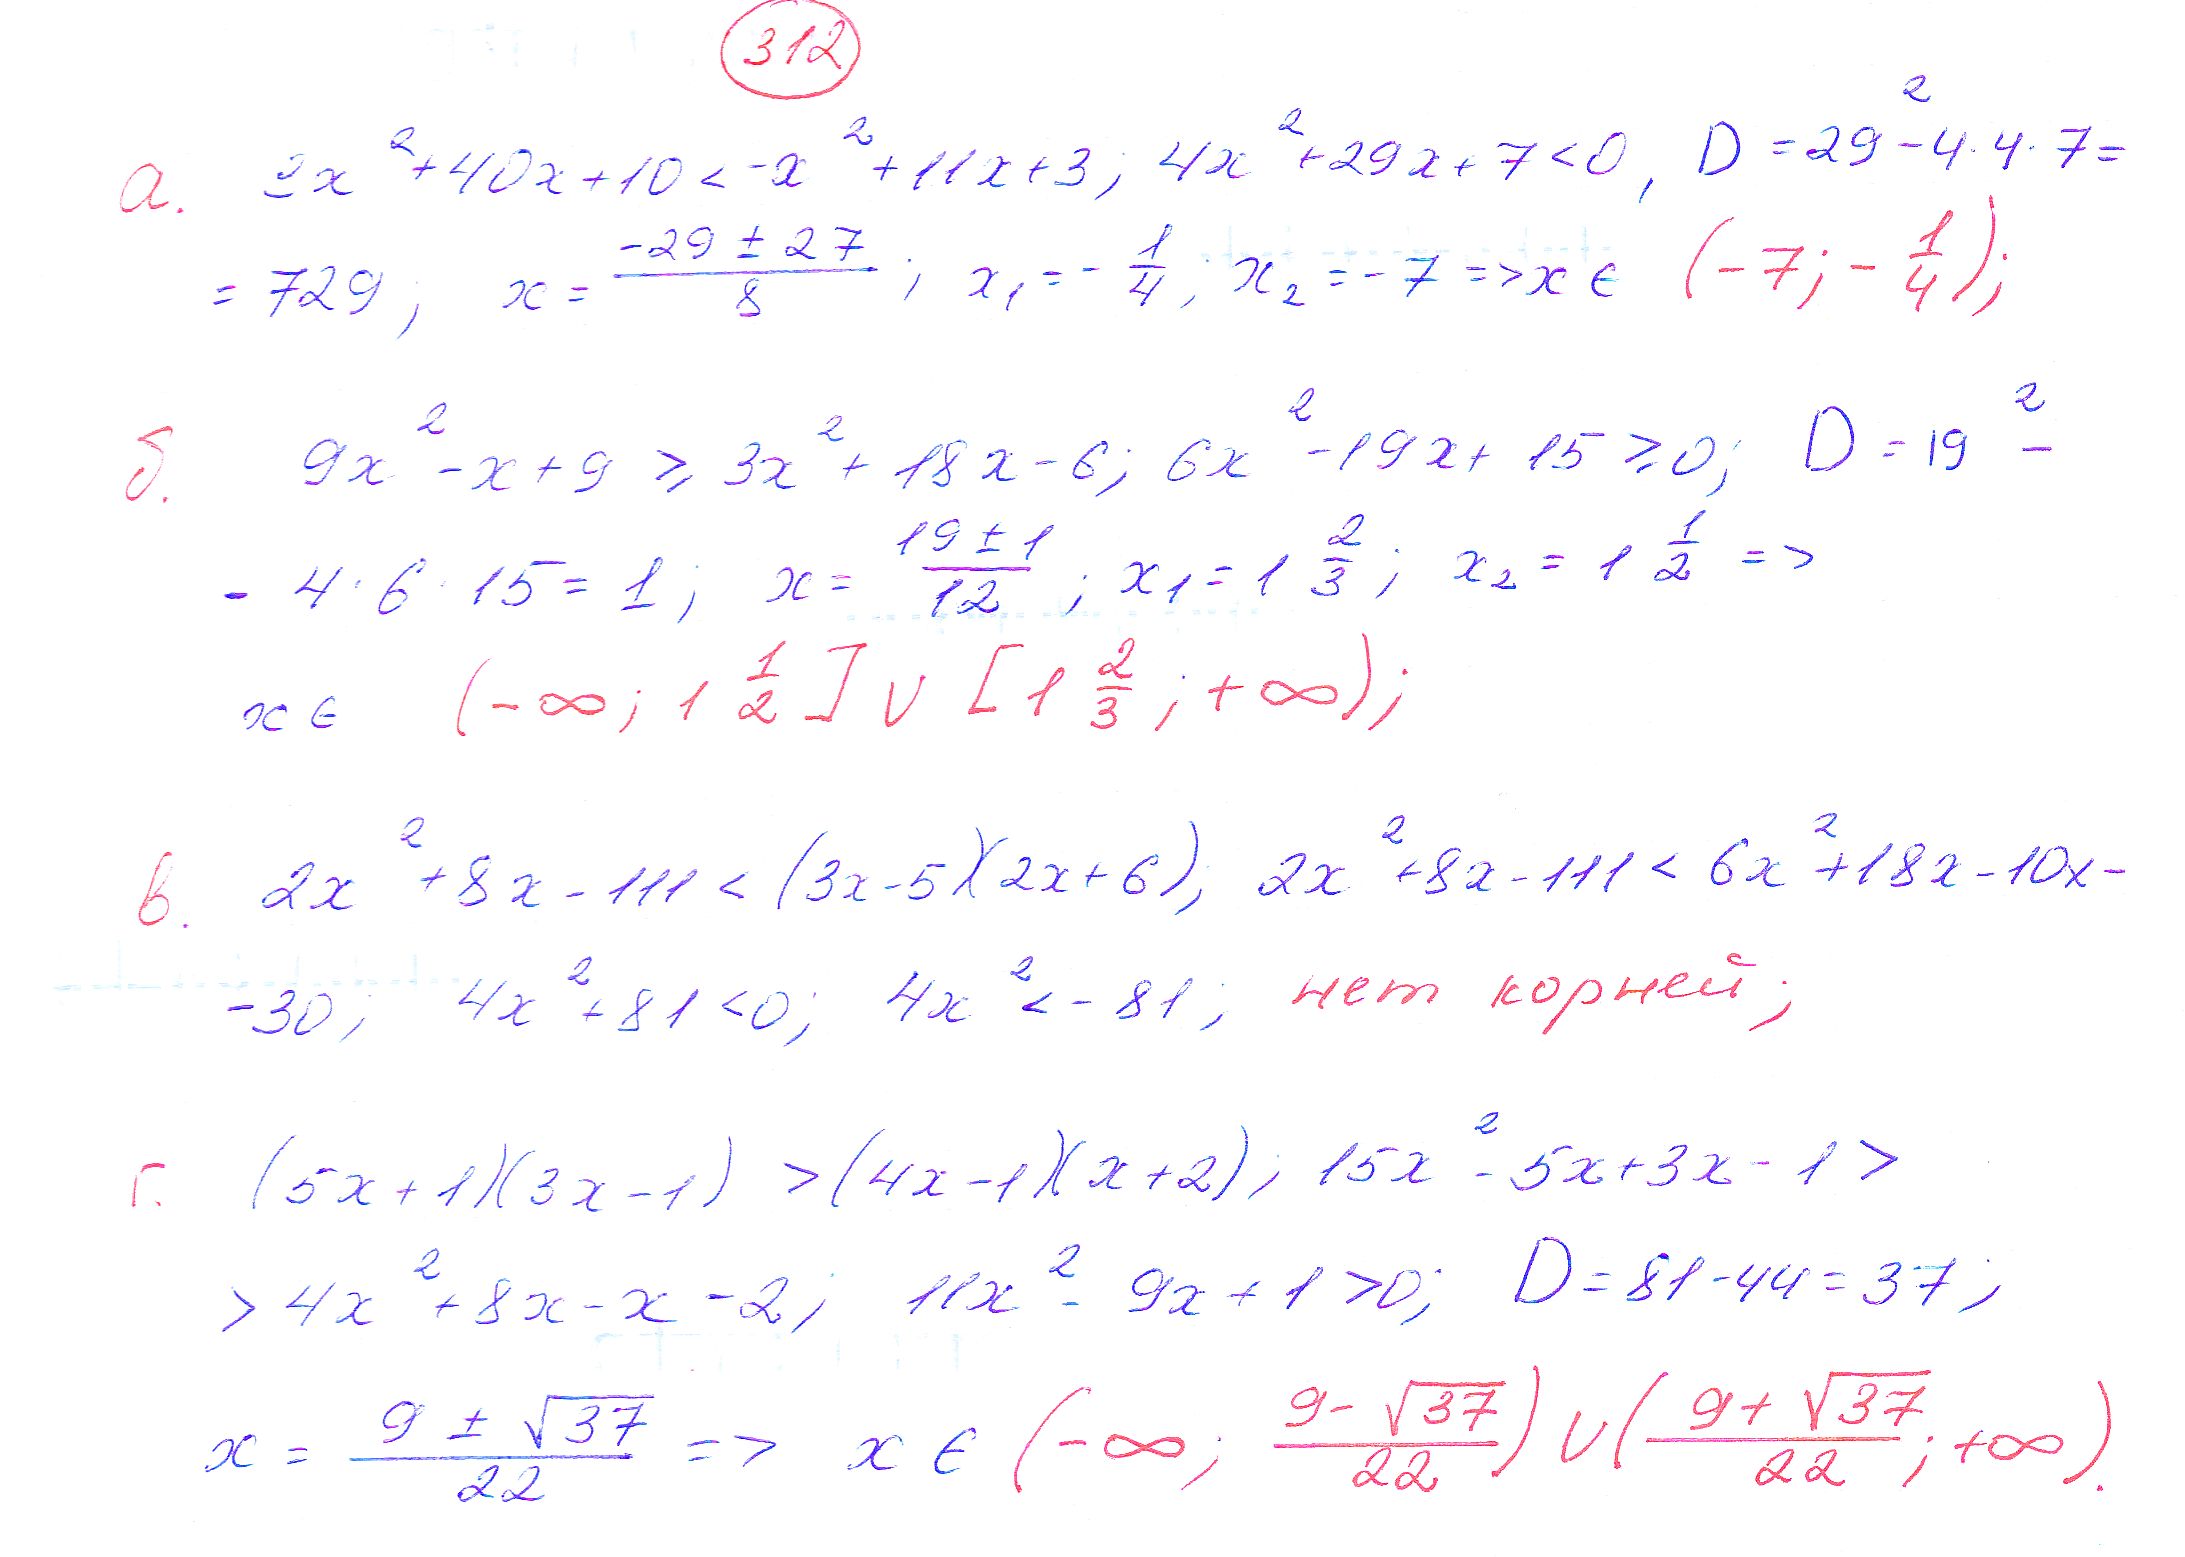 312
а. 2x² + 40x + 10 < -x² + 11x + 3; 4x² + 29x + 7 < 0, D = 29² - 4·4·7 =
= 729; x = (-29 ± 27)/8; x₁ = -1/4; x₂ = -7 => x ∈ (-7; -1/4);
б. 9x² - x + 9 ≥ 3x² + 18x - 6; 6x² - 19x + 15 ≥ 0; D = 19² -
- 4·6·15 = 1; x = (19 ± 1)/12; x₁ = 1 2/3; x₂ = 1 1/2 =>
x ∈ (-∞; 1 1/2] ∪ [1 2/3; +∞);
в. 2x² + 8x - 111 < (3x - 5)(2x + 6); 2x² + 8x - 111 < 6x² + 18x - 10x -
- 30; 4x² + 81 < 0; 4x² < - 81; нет корней;
г. (5x + 1)(3x - 1) > (4x - 1)(x + 2); 15x² - 5x + 3x - 1 >
> 4x² + 8x - x - 2; 11x² - 9x + 1 > 0; D = 81 - 44 = 37;
x = (9 ± √37)/22 => x ∈ (-∞; (9 - √37)/22) ∪ ((9 + √37)/22; +∞).